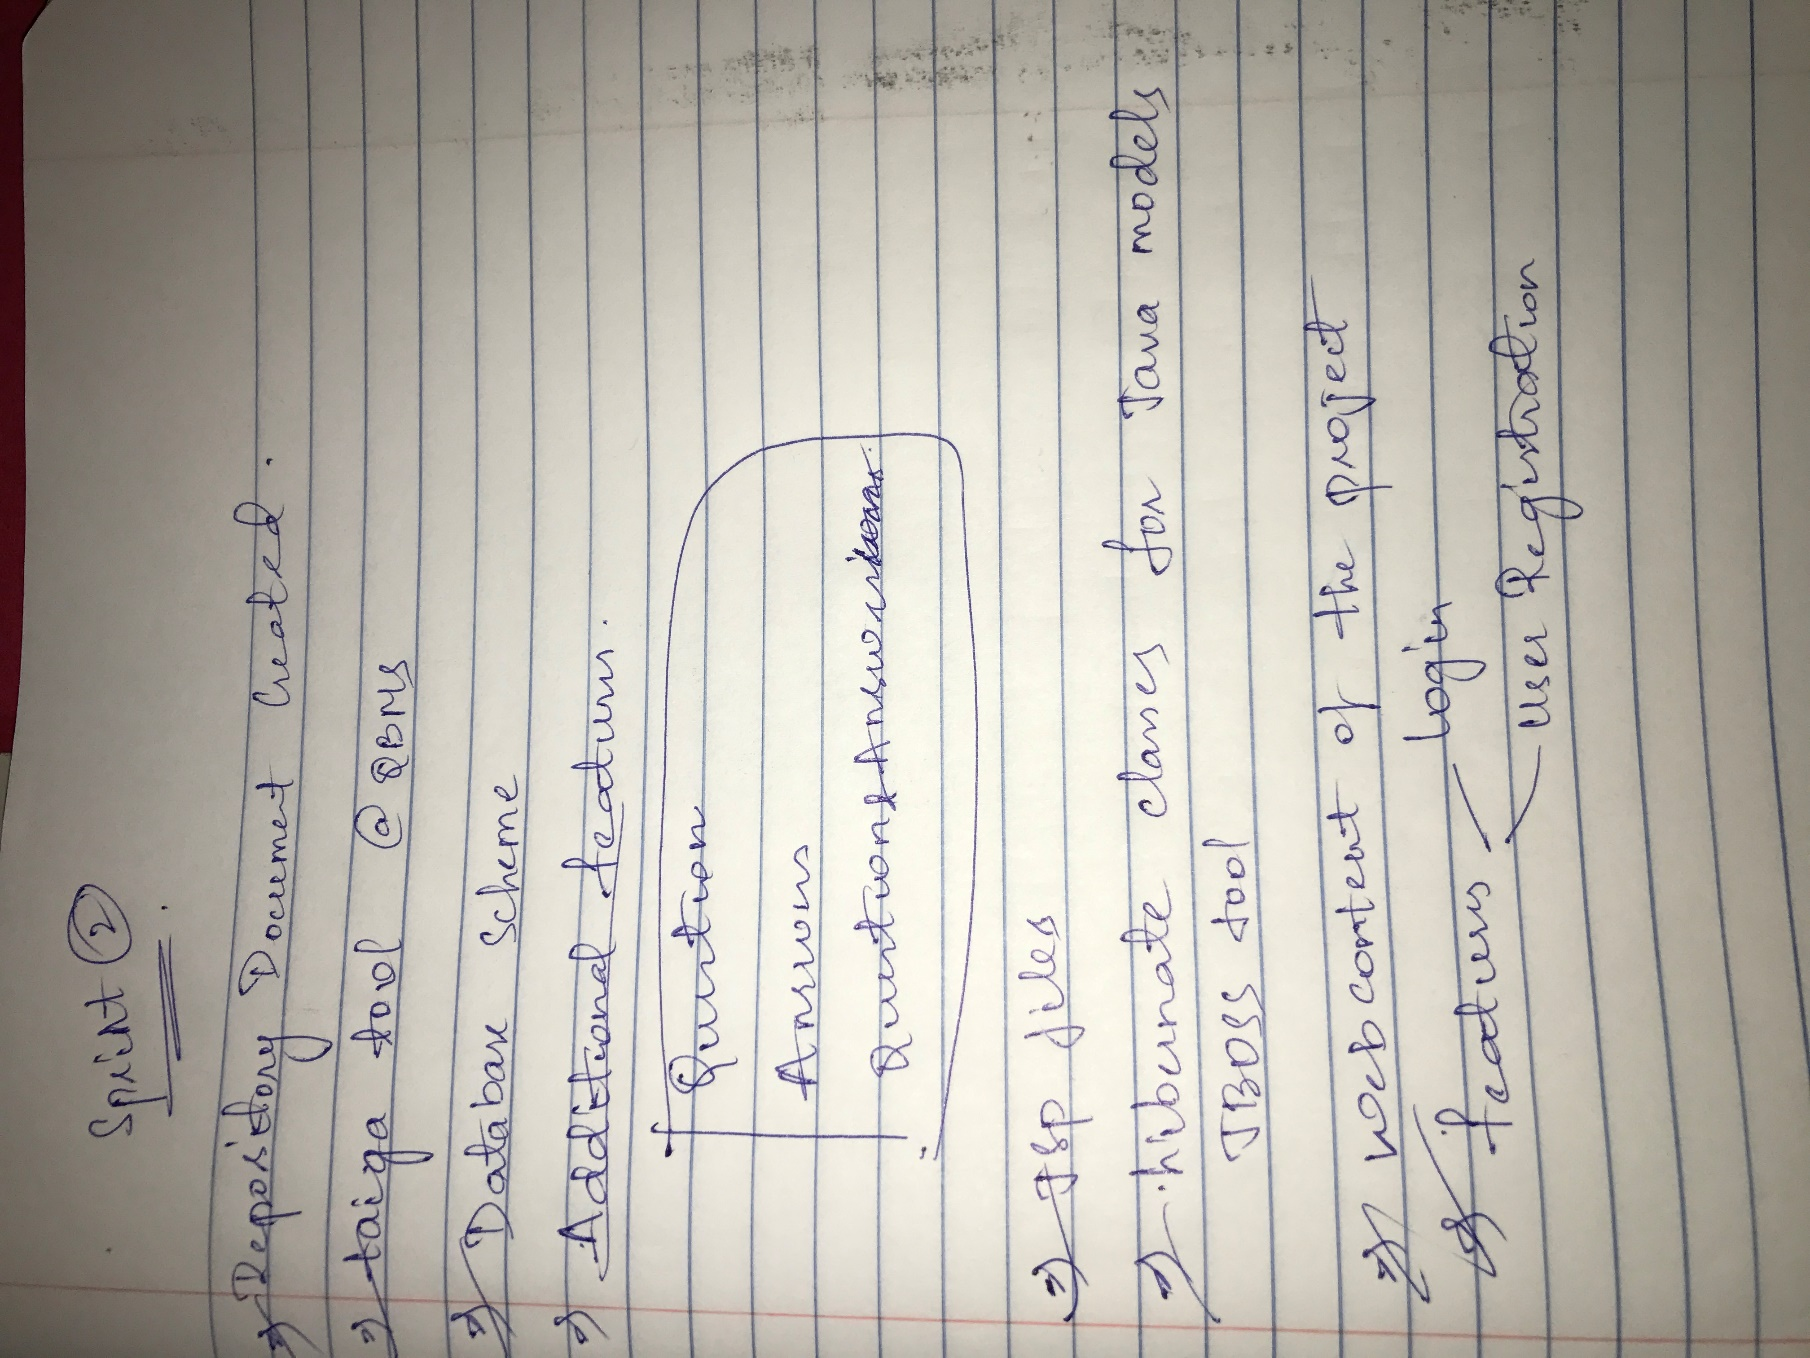 Sprint ②
⇒ Repository Document Created.
⇒ taiga tool @ QBMS
⇒ Database Scheme
⇒ Additional features.
Question
Answers
Question Answer
⇒ JSP files
⇒ hibernate classes for Java models
JBOSS tool
⇒ Web content of the project
⇒ features - Login
- User Registration